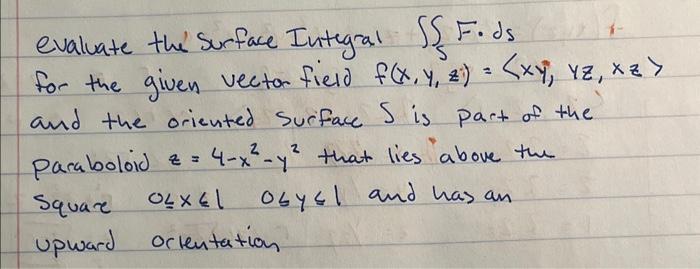 evaluate the Surface Integral ∬_S F·ds
for the given vector field f(x, y, z) = <xy, yz, xz>
and the oriented surface S is part of the
paraboloid z = 4-x²-y² that lies above the
Square 0≤x≤1 0≤y≤1 and has an
upward orientation